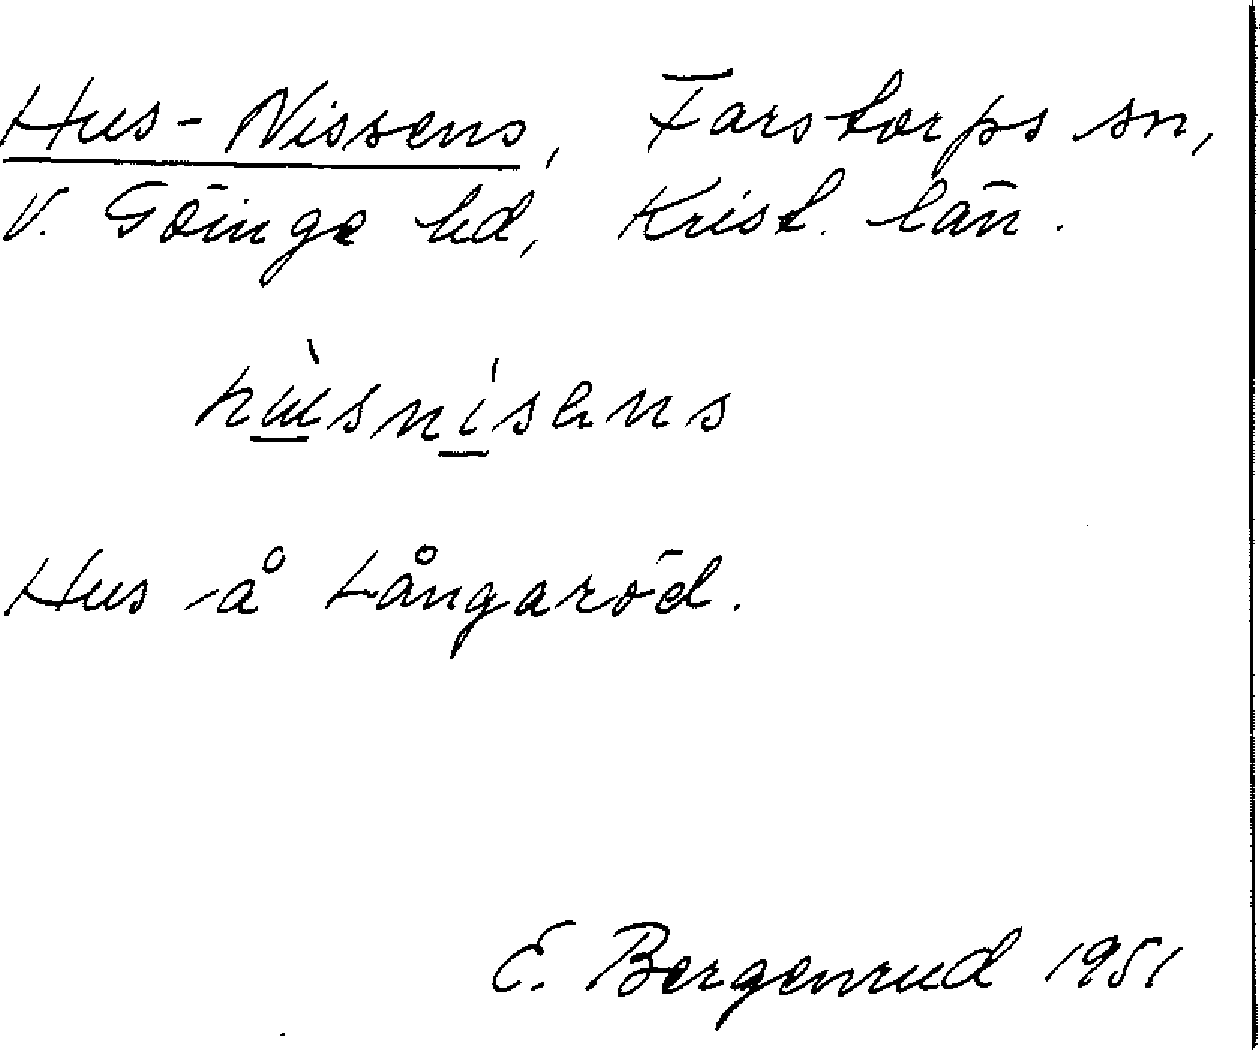 Hus-Nissens, Farstorps sn,
V. Göinge hd, Krist. län.
hùsnísens
Hus å Långaröd.
E. Bergenrud 1951